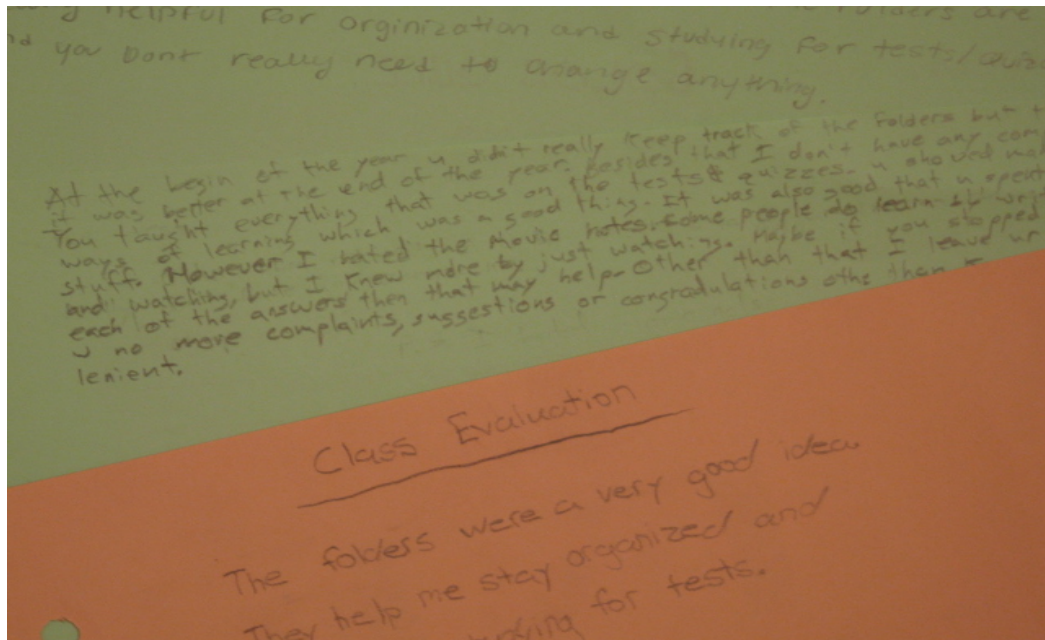 helpful for orginization and studying for tests/quiz
you Dont really need to change anything.
At the begin of the year u didn't really keep track of the folders but
it was better at the end of the year. Besides that I don't have any com
You taught everything that was on the tests & quizzes. u showed
ways of learning which was a good thing. It was also good that u spent
stuff. However I hated the movie notes. Some people do learn
and watching, but I knew more by just watching. Maybe if you stopped
each of the answers then that may help. Other than that I leave ur
u no more complaints, suggestions or congradulations othe than
lenient.
Class Evaluation
The folders were a very good idea.
They help me stay organized and
for tests.